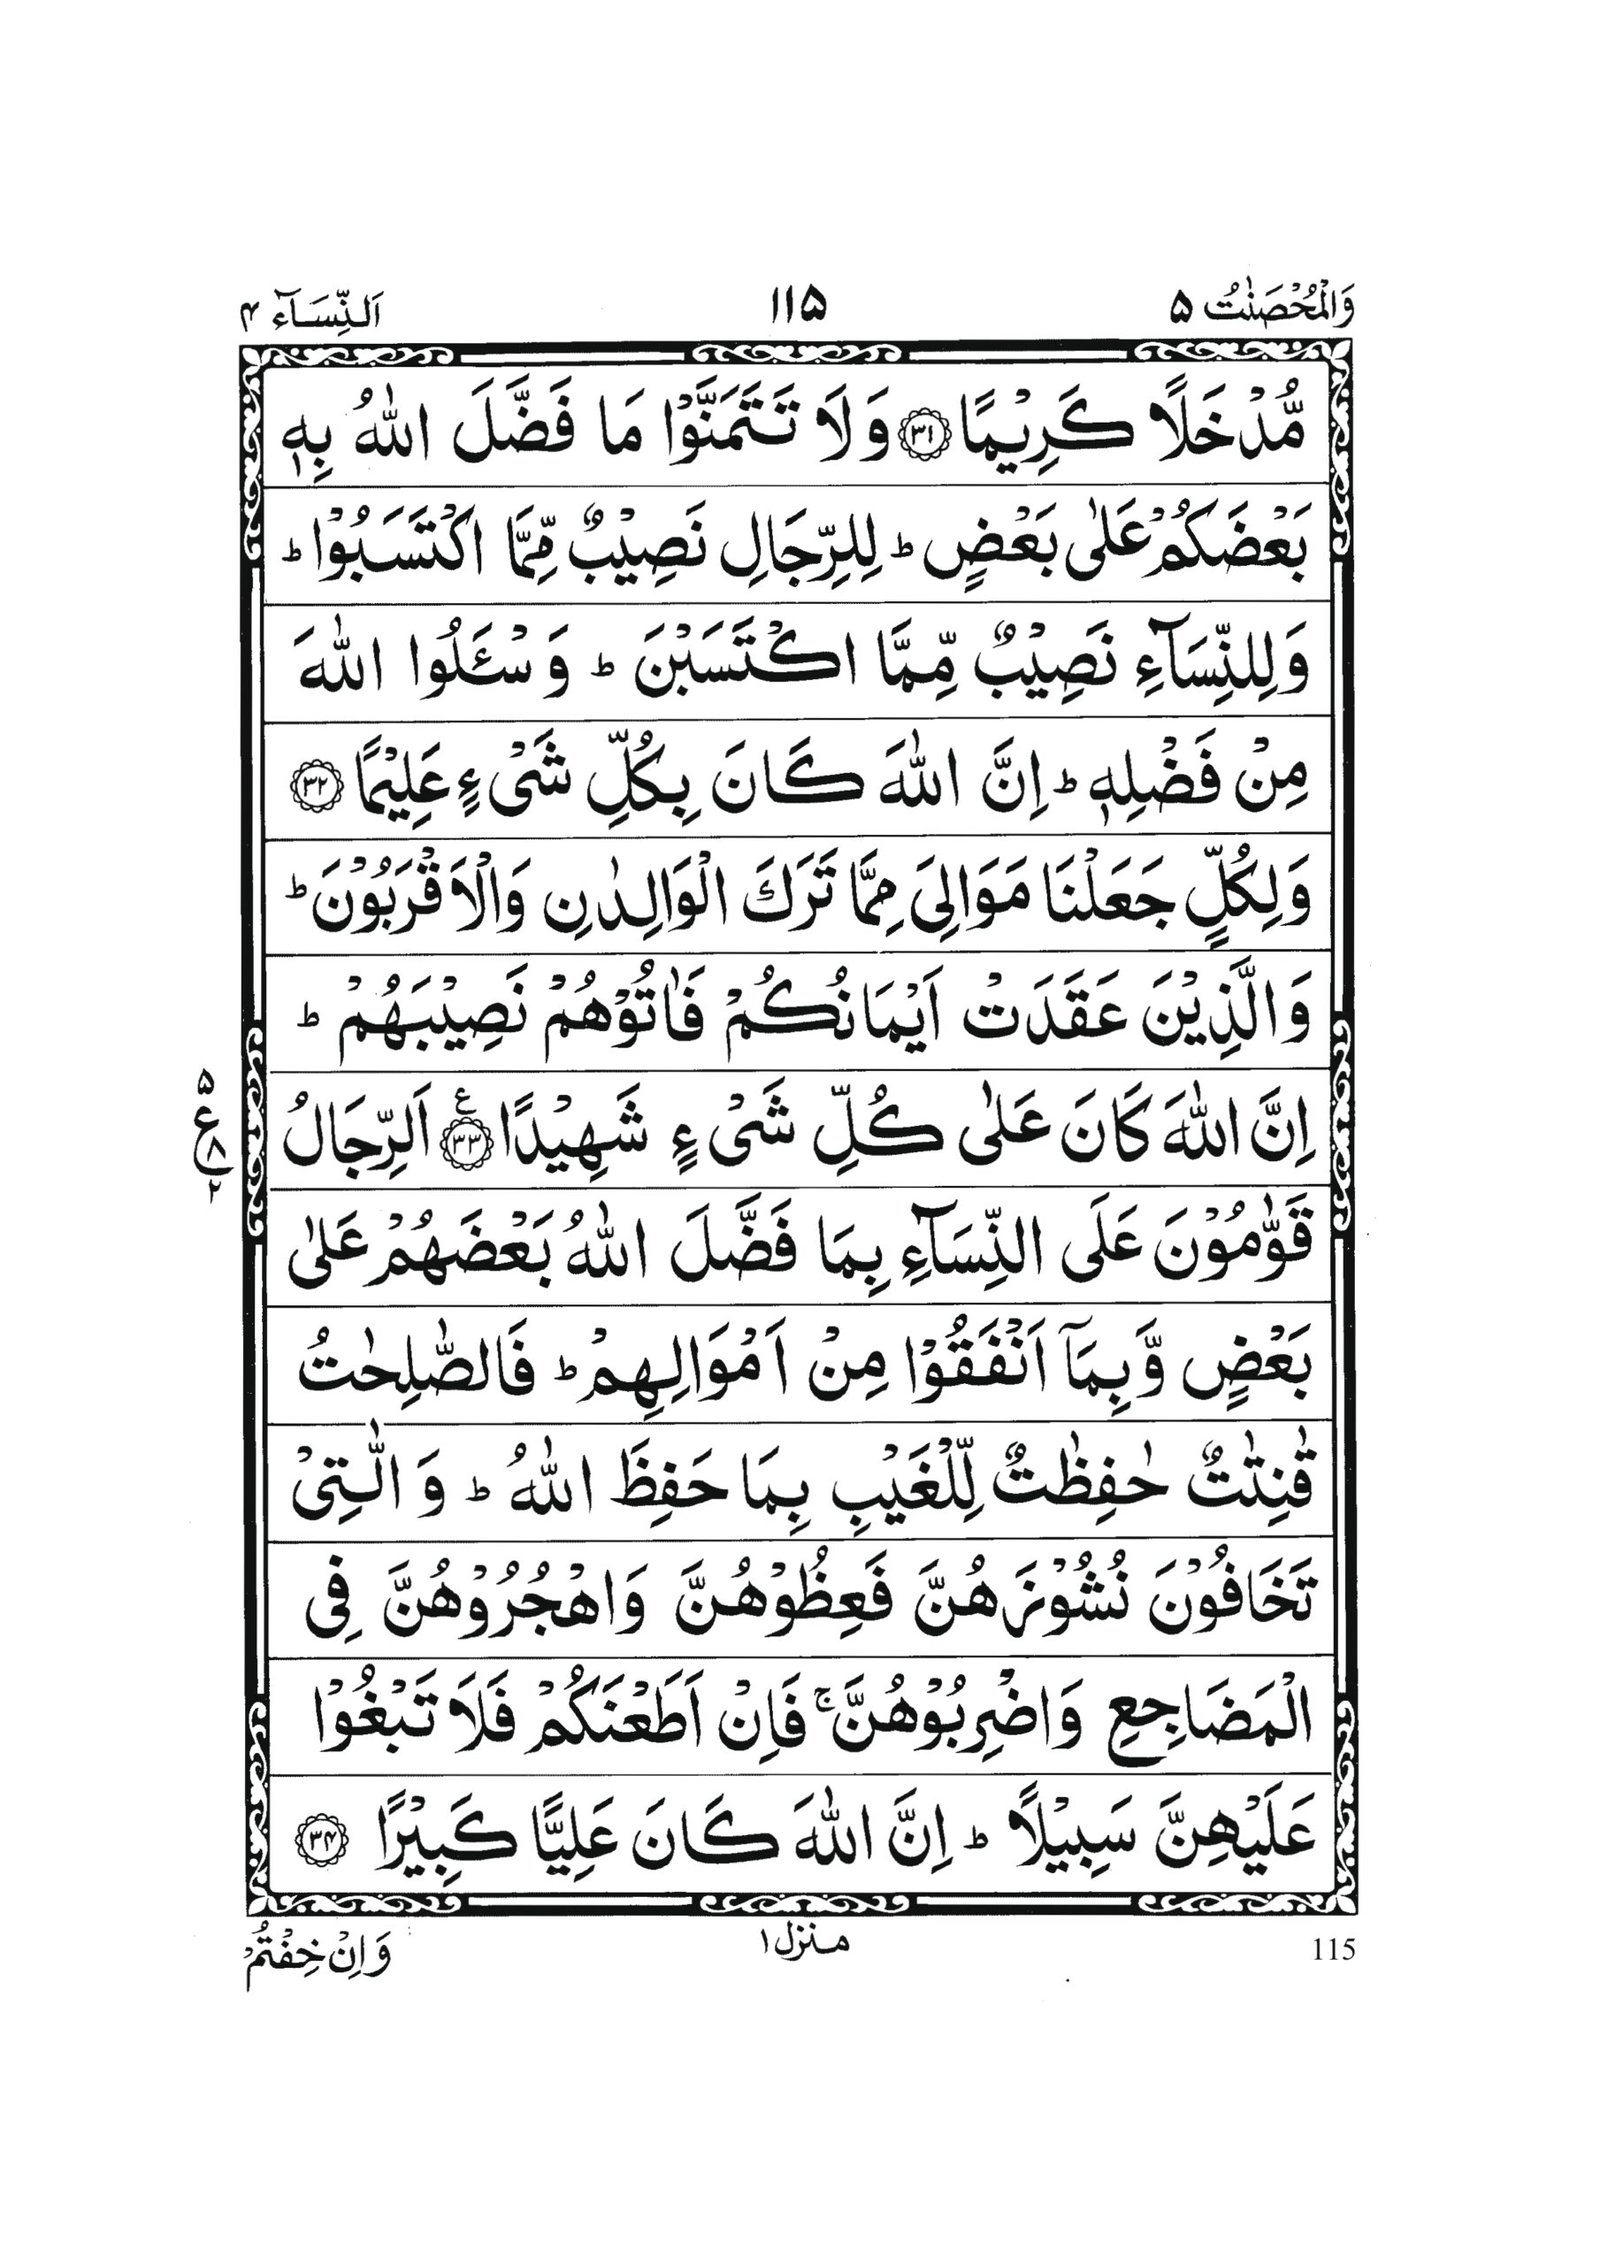 وَالْمُحْصَنٰتُ ۵
۱۱۵
اَلنِّسَآء ۴
مُّدْخَلًا كَرِيْمًا ﴿۳۱﴾ وَلَا تَتَمَنَّوْا مَا فَضَّلَ اللّٰهُ بِهٖ
بَعْضَكُمْ عَلٰى بَعْضٍ ؕ لِلرِّجَالِ نَصِيْبٌ مِّمَّا اكْتَسَبُوْا ؕ
وَلِلنِّسَآءِ نَصِيْبٌ مِّمَّا اكْتَسَبْنَ ؕ وَسْـَٔلُوا اللّٰهَ
مِنْ فَضْلِهٖ ؕ اِنَّ اللّٰهَ كَانَ بِكُلِّ شَىْءٍ عَلِيْمًا ﴿۳۲﴾
وَلِكُلٍّ جَعَلْنَا مَوَالِىَ مِمَّا تَرَكَ الْوَالِدٰنِ وَالْاَقْرَبُوْنَ ؕ
وَالَّذِيْنَ عَقَدَتْ اَيْمَانُكُمْ فَاٰتُوْهُمْ نَصِيْبَهُمْ ؕ
اِنَّ اللّٰهَ كَانَ عَلٰى كُلِّ شَىْءٍ شَهِيْدًا ﴿۳۳﴾ ع اَلرِّجَالُ
۵
ع
۸
۲
قَوّٰمُوْنَ عَلَى النِّسَآءِ بِمَا فَضَّلَ اللّٰهُ بَعْضَهُمْ عَلٰى
بَعْضٍ وَّبِمَآ اَنْفَقُوْا مِنْ اَمْوَالِهِمْ ؕ فَالصّٰلِحٰتُ
قٰنِتٰتٌ حٰفِظٰتٌ لِّلْغَيْبِ بِمَا حَفِظَ اللّٰهُ ؕ وَالّٰتِىْ
تَخَافُوْنَ نُشُوْزَهُنَّ فَعِظُوْهُنَّ وَاهْجُرُوْهُنَّ فِى
الْمَضَاجِعِ وَاضْرِبُوْهُنَّ ۚ فَاِنْ اَطَعْنَكُمْ فَلَا تَبْغُوْا
عَلَيْهِنَّ سَبِيْلًا ؕ اِنَّ اللّٰهَ كَانَ عَلِيًّا كَبِيْرًا ﴿۳۴﴾
115
منزل ۱
وَاِنْ خِفْتُمْ